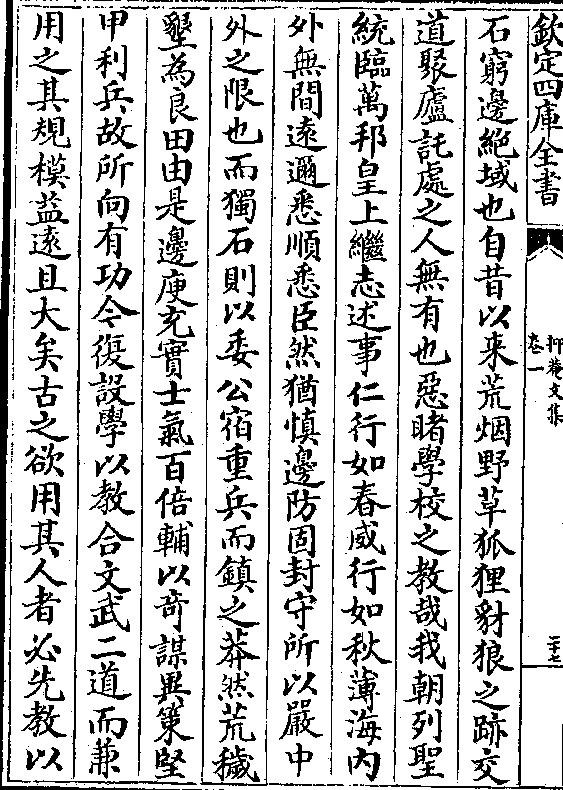 欽定四庫全書
抑菴文集
卷一
二十七
石窮邊絕域也自昔以来荒烟野草狐狸豺狼之跡交
道聚廬託處之人無有也惡睹學校之教哉我朝列聖
統臨萬邦皇上繼志述事仁行如春威行如秋薄海内
外無間遠邇悉順悉臣然猶慎邊防固封守所以嚴中
外之限也而獨石則以委公宿重兵而鎮之莽然荒穢
墾為良田由是邊庾充實士氣百倍輔以奇謀異策堅
甲利兵故所向有功今復設學以教合文武二道而兼
用之其規模葢遠且大矣古之欲用其人者必先教以